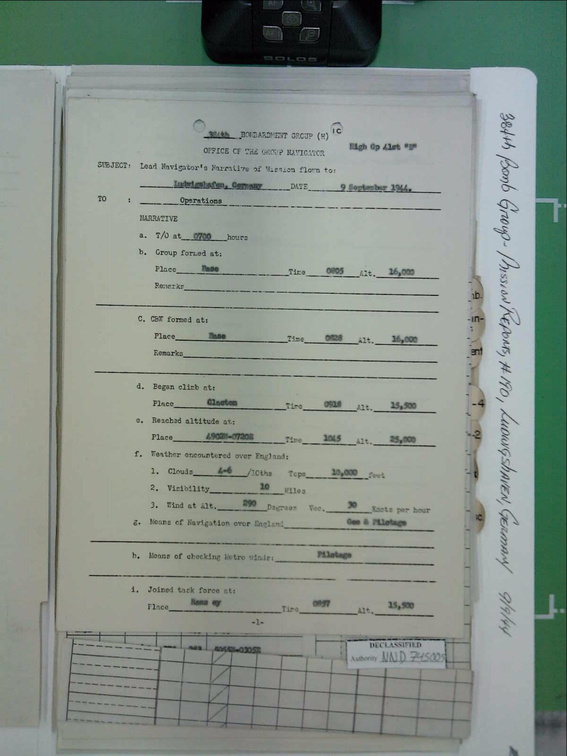 SOLOS
384th BOMBARDMENT GROUP (H) 1C
OFFICE OF THE GROUP NAVIGATOR High Gp 41st "B"
SUBJECT: Lead Navigator's Narrative of Mission flown to:
Ludwigshafen, Germany DATE 9 September 1944.
TO : Operations
NARRATIVE
a. T/O at 0700 hours
b. Group formed at:
Place Base Time 0805 Alt. 16,000
Remarks
C. CBW formed at:
Place Base Time 0828 Alt. 16,000
Remarks
d. Began climb at:
Place Clacton Time Alt. 15,500
e. Reached altitude at:
Place Time 1045 Alt. 25,000
f. Weather encountered over England:
1. Clouds 4-6 /10ths Tops 10,000 feet
2. Visibility 10 Miles
3. Wind at Alt. 290 Degrees Vec. 30 Knots per hour
g. Means of Navigation over England Gee & Pilotage
h. Means of checking Metro winds: Pilotage
i. Joined task force at:
Place Time 0857 Alt. 15,500
-1-
DECLASSIFIED
Authority NND 745005
384th Bomb Group- Mission Reports, #190, Ludwigshafen Germany 9/9/44